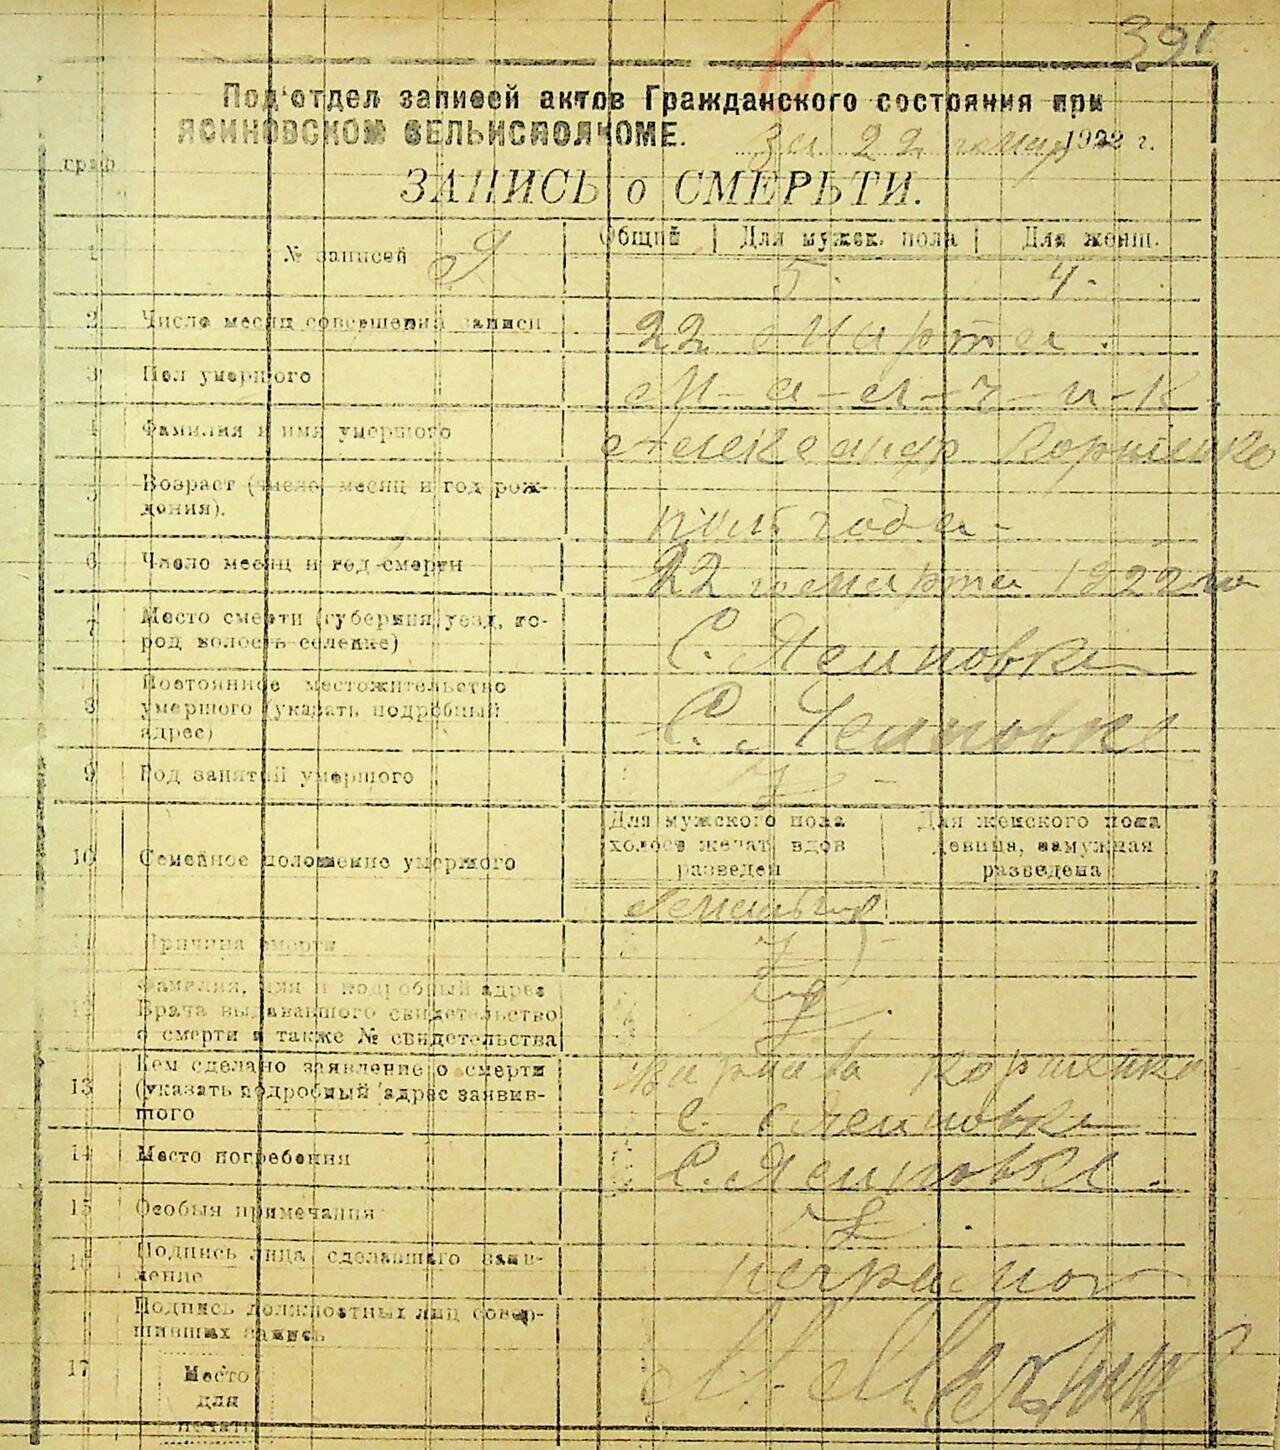 391
Под'отдел записей актов Гражданского состояния при
ЯСИНОВСКОМ СЕЛЬИСПОЛЧОМЕ.
За 22 1922 г.
граф
ЗАПИСЬ о СМЕРЬТИ.
1 № записей 9 Общий Для мужск. пола Для женщ.
5. 4.
2 Число месяц совершения записи 22 Марта.
3 Пол умершого М-а-л-ч-и-к
4 Фамилия и имя умершого Александр Коршенко
5 Возраст (число, месяц и год рож-
дения). пол года -
6 Число месяц и год смерти 22 го марта 1922 го
7 Место смерти (губерния, уезд, го-
род волость селение) С. Ясиновка
8 Постоянное местожительство
умершого (указать подробный
адрес) С. Ясиновка
9 Род занятий умершого
Для мужского пола Для женского пола
10 Семейное положение умершого холост женат, вдов девица, замужная
разведен разведена
11 Причина смерти
12 Фамелия, имя и подробный адрес
Врача выдававшого свидетельство
о смерти а также № свидетельства
13 Кем сделано заявление о смерти Варвава Коршенко
(указать подробный адрес заявив-
шого с. Ясиновка
14 Место погребения С. Ясиновке.
15 Особыя примечания
16 Подпись лица сделавшаго заяв-
ление неграмот
17 Подпись должностных лиц совер-
шивших запись
Место
для
печати